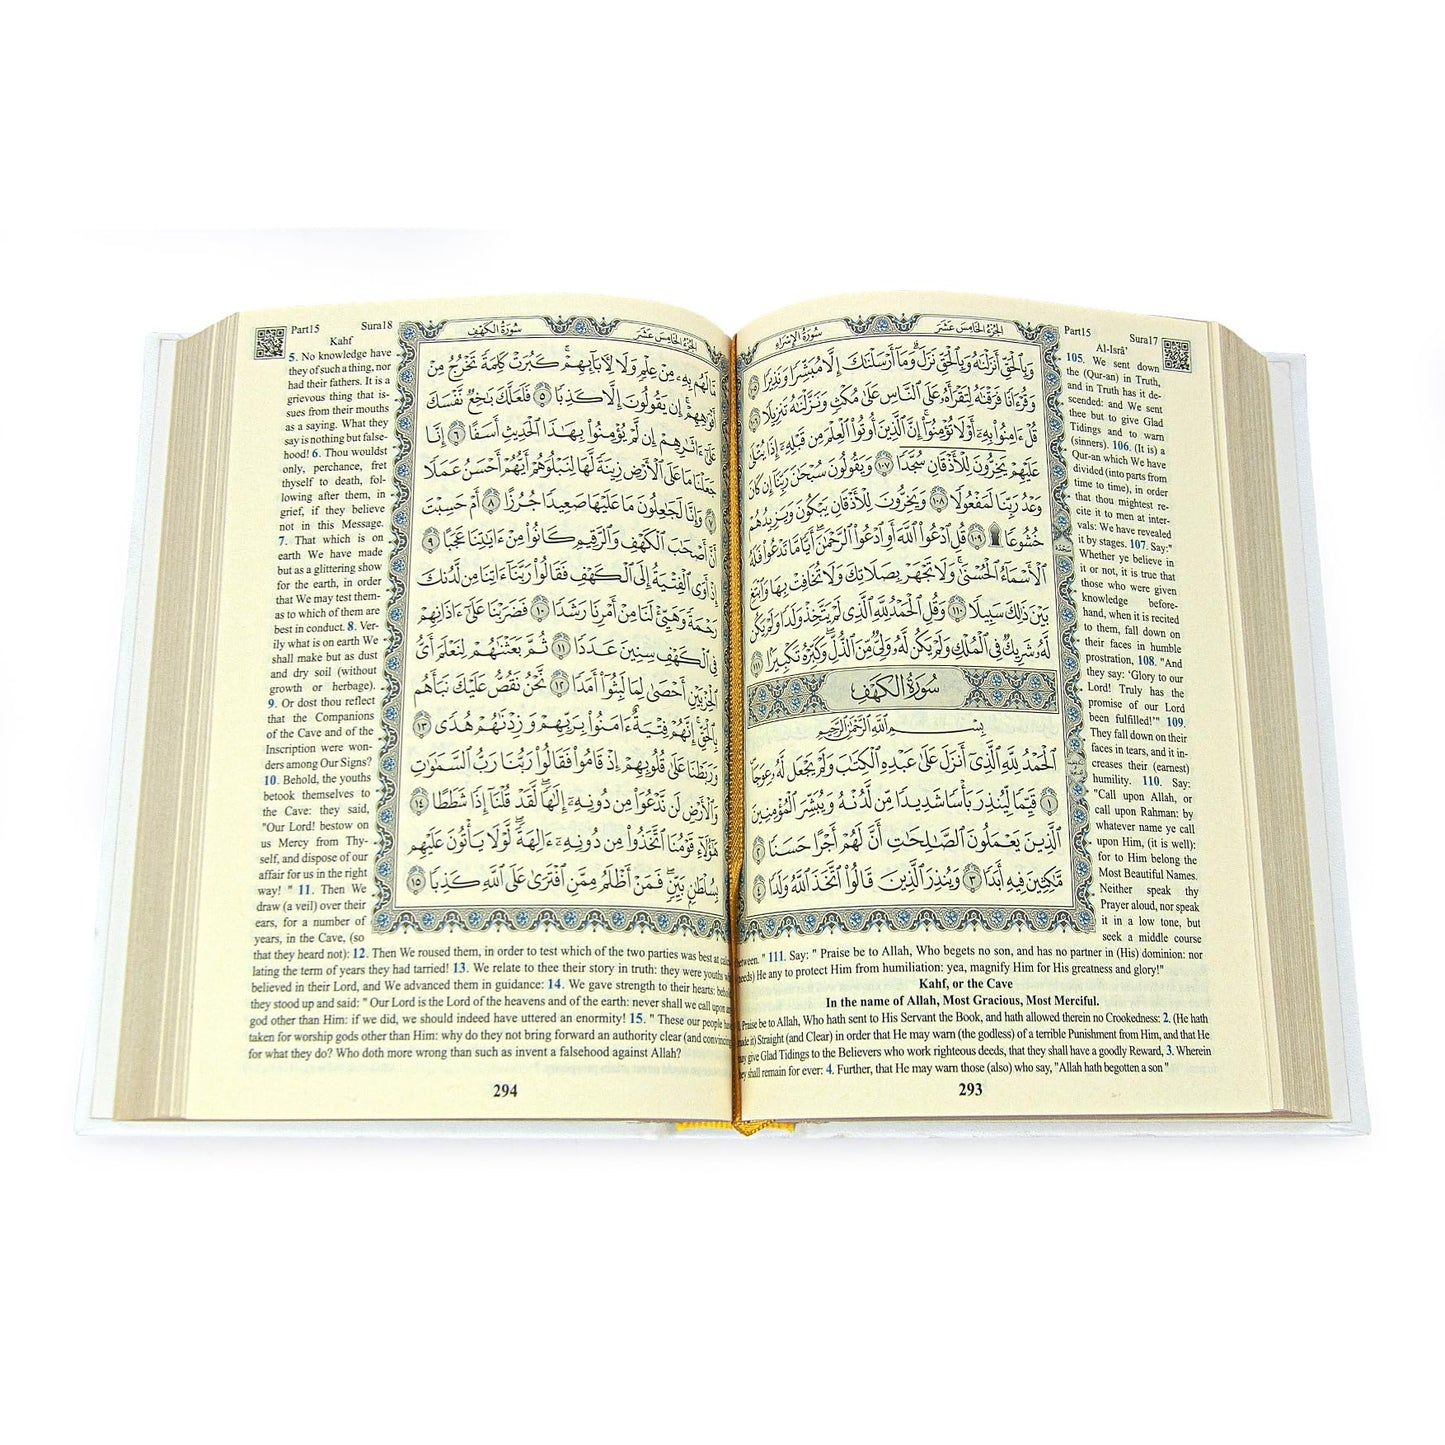 الجزء الخامس عشر
سورة الإسراء
وَبِٱلْحَقِّ أَنزَلْنَٰهُ وَبِٱلْحَقِّ نَزَلَ ۗ وَمَآ أَرْسَلْنَٰكَ إِلَّا مُبَشِّرًا وَنَذِيرًا ١٠٥
وَقُرْءَانًا فَرَقْنَٰهُ لِتَقْرَأَهُۥ عَلَى ٱلنَّاسِ عَلَىٰ مُكْثٍ وَنَزَّلْنَٰهُ تَنزِيلًا ١٠٦
قُلْ ءَامِنُوا۟ بِهِۦٓ أَوْ لَا تُؤْمِنُوٓا۟ ۚ إِنَّ ٱلَّذِينَ أُوتُوا۟ ٱلْعِلْمَ مِن قَبْلِهِۦٓ إِذَا يُتْلَىٰ
عَلَيْهِمْ يَخِرُّونَ لِلْأَذْقَانِ سُجَّدًا ١٠٧ وَيَقُولُونَ سُبْحَٰنَ رَبِّنَآ إِن كَانَ
وَعْدُ رَبِّنَا لَمَفْعُولًا ١٠٨ وَيَخِرُّونَ لِلْأَذْقَانِ يَبْكُونَ وَيَزِيدُهُمْ
خُشُوعًا ۩ ١٠٩ قُلِ ٱدْعُوا۟ ٱللَّهَ أَوِ ٱدْعُوا۟ ٱلرَّحْمَٰنَ ۖ أَيًّا مَّا تَدْعُوا۟ فَلَهُ
ٱلْأَسْمَآءُ ٱلْحُسْنَىٰ ۚ وَلَا تَجْهَرْ بِصَلَاتِكَ وَلَا تُخَافِتْ بِهَا وَٱبْتَغِ
بَيْنَ ذَٰلِكَ سَبِيلًا ١١٠ وَقُلِ ٱلْحَمْدُ لِلَّهِ ٱلَّذِى لَمْ يَتَّخِذْ وَلَدًا وَلَمْ يَكُن
لَّهُۥ شَرِيكٌ فِى ٱلْمُلْكِ وَلَمْ يَكُن لَّهُۥ وَلِىٌّ مِّنَ ٱلذُّلِّ ۖ وَكَبِّرْهُ تَكْبِيرًۢا ١١١
سُورَةُ الكَهْفِ
بِسْمِ ٱللَّهِ ٱلرَّحْمَٰنِ ٱلرَّحِيمِ
ٱلْحَمْدُ لِلَّهِ ٱلَّذِىٓ أَنزَلَ عَلَىٰ عَبْدِهِ ٱلْكِتَٰبَ وَلَمْ يَجْعَل لَّهُۥ عِوَجَا
١ قَيِّمًا لِّيُنذِرَ بَأْسًا شَدِيدًا مِّن لَّدُنْهُ وَيُبَشِّرَ ٱلْمُؤْمِنِينَ
ٱلَّذِينَ يَعْمَلُونَ ٱلصَّٰلِحَٰتِ أَنَّ لَهُمْ أَجْرًا حَسَنًا ٢
مَّٰكِثِينَ فِيهِ أَبَدًا ٣ وَيُنذِرَ ٱلَّذِينَ قَالُوا۟ ٱتَّخَذَ ٱللَّهُ وَلَدًا ٤
Part15 Sura17
Al-Isrâ'
105. We sent down
the (Qur-an) in Truth,
and in Truth has it de-
scended: and We sent
thee but to give Glad
Tidings and to warn
(sinners). 106. (It is) a
Qur-an which We have
divided (into parts from
time to time), in order
that thou mightest re-
cite it to men at inter-
vals: We have revealed
it by stages. 107. Say:"
Whether ye believe in
it or not, it is true that
those who were given
knowledge before-
hand, when it is recited
to them, fall down on
their faces in humble
prostration, 108. "And
they say: 'Glory to our
Lord! Truly has the
promise of our Lord
been fulfilled!'" 109.
They fall down on their
faces in tears, and it in-
creases their (earnest)
humility. 110. Say:
"Call upon Allah, or
call upon Rahman: by
whatever name ye call
upon Him, (it is well):
for to Him belong the
Most Beautiful Names.
Neither speak thy
Prayer aloud, nor speak
it in a low tone, but
seek a middle course
between. " 111. Say: " Praise be to Allah, Who begets no son, and has no partner in (His) dominion: nor
(needs) He any to protect Him from humiliation: yea, magnify Him for His greatness and glory!"
Kahf, or the Cave
In the name of Allah, Most Gracious, Most Merciful.
1. Praise be to Allah, Who hath sent to His Servant the Book, and hath allowed therein no Crookedness: 2. (He hath
made it) Straight (and Clear) in order that He may warn (the godless) of a terrible Punishment from Him, and that He
may give Glad Tidings to the Believers who work righteous deeds, that they shall have a goodly Reward, 3. Wherein
they shall remain for ever: 4. Further, that He may warn those (also) who say, "Allah hath begotten a son "
293
الجزء الخامس عشر
سورة الكهف
مَّا لَهُم بِهِۦ مِنْ عِلْمٍ وَلَا لِءَابَآئِهِمْ ۚ كَبُرَتْ كَلِمَةً تَخْرُجُ مِنْ
أَفْوَٰهِهِمْ ۚ إِن يَقُولُونَ إِلَّا كَذِبًا ٥ فَلَعَلَّكَ بَٰخِعٌ نَّفْسَكَ
عَلَىٰٓ ءَاثَٰرِهِمْ إِن لَّمْ يُؤْمِنُوا۟ بِهَٰذَا ٱلْحَدِيثِ أَسَفًا ٦ إِنَّا
جَعَلْنَا مَا عَلَى ٱلْأَرْضِ زِينَةً لَّهَا لِنَبْلُوَهُمْ أَيُّهُمْ أَحْسَنُ عَمَلًا
٧ وَإِنَّا لَجَٰعِلُونَ مَا عَلَيْهَا صَعِيدًا جُرُزًا ٨ أَمْ حَسِبْتَ
أَنَّ أَصْحَٰبَ ٱلْكَهْفِ وَٱلرَّقِيمِ كَانُوا۟ مِنْ ءَايَٰتِنَا عَجَبًا ٩
إِذْ أَوَى ٱلْفِتْيَةُ إِلَى ٱلْكَهْفِ فَقَالُوا۟ رَبَّنَآ ءَاتِنَا مِن لَّدُنكَ
رَحْمَةً وَهَيِّئْ لَنَا مِنْ أَمْرِنَا رَشَدًا ١٠ فَضَرَبْنَا عَلَىٰٓ ءَاذَانِهِمْ
فِى ٱلْكَهْفِ سِنِينَ عَدَدًا ١١ ثُمَّ بَعَثْنَٰهُمْ لِنَعْلَمَ أَىُّ
ٱلْحِزْبَيْنِ أَحْصَىٰ لِمَا لَبِثُوٓا۟ أَمَدًا ١٢ نَّحْنُ نَقُصُّ عَلَيْكَ نَبَأَهُم
بِٱلْحَقِّ ۚ إِنَّهُمْ فِتْيَةٌ ءَامَنُوا۟ بِرَبِّهِمْ وَزِدْنَٰهُمْ هُدًى ١٣
وَرَبَطْنَا عَلَىٰ قُلُوبِهِمْ إِذْ قَامُوا۟ فَقَالُوا۟ رَبُّنَا رَبُّ ٱلسَّمَٰوَٰتِ
وَٱلْأَرْضِ لَن نَّدْعُوَا۟ مِن دُونِهِۦٓ إِلَٰهًا ۖ لَّقَدْ قُلْنَآ إِذًا شَطَطًا ١٤
هَٰٓؤُلَآءِ قَوْمُنَا ٱتَّخَذُوا۟ مِن دُونِهِۦٓ ءَالِهَةً ۖ لَّوْلَا يَأْتُونَ عَلَيْهِم
بِسُلْطَٰنٍۭ بَيِّنٍ ۖ فَمَنْ أَظْلَمُ مِمَّنِ ٱفْتَرَىٰ عَلَى ٱللَّهِ كَذِبًا ١٥
Part15 Sura18
Kahf
5. No knowledge have
they of such a thing, nor
had their fathers. It is a
grievous thing that is-
sues from their mouths
as a saying. What they
say is nothing but false-
hood! 6. Thou wouldst
only, perchance, fret
thyself to death, fol-
lowing after them, in
grief, if they believe
not in this Message.
7. That which is on
earth We have made
but as a glittering show
for the earth, in order
that We may test them-
as to which of them are
best in conduct. 8. Ver-
ily what is on earth We
shall make but as dust
and dry soil (without
growth or herbage).
9. Or dost thou reflect
that the Companions
of the Cave and of the
Inscription were won-
ders among Our Signs?
10. Behold, the youths
betook themselves to
the Cave: they said,
"Our Lord! bestow on
us Mercy from Thy-
self, and dispose of our
affair for us in the right
way! " 11. Then We
draw (a veil) over their
ears, for a number of
years, in the Cave, (so
that they heard not): 12. Then We roused them, in order to test which of the two parties was best at calcu-
lating the term of years they had tarried! 13. We relate to thee their story in truth: they were youths who
believed in their Lord, and We advanced them in guidance: 14. We gave strength to their hearts: behold,
they stood up and said: " Our Lord is the Lord of the heavens and of the earth: never shall we call upon any
god other than Him: if we did, we should indeed have uttered an enormity! 15. " These our people have
taken for worship gods other than Him: why do they not bring forward an authority clear (and convincing)
for what they do? Who doth more wrong than such as invent a falsehood against Allah?
294